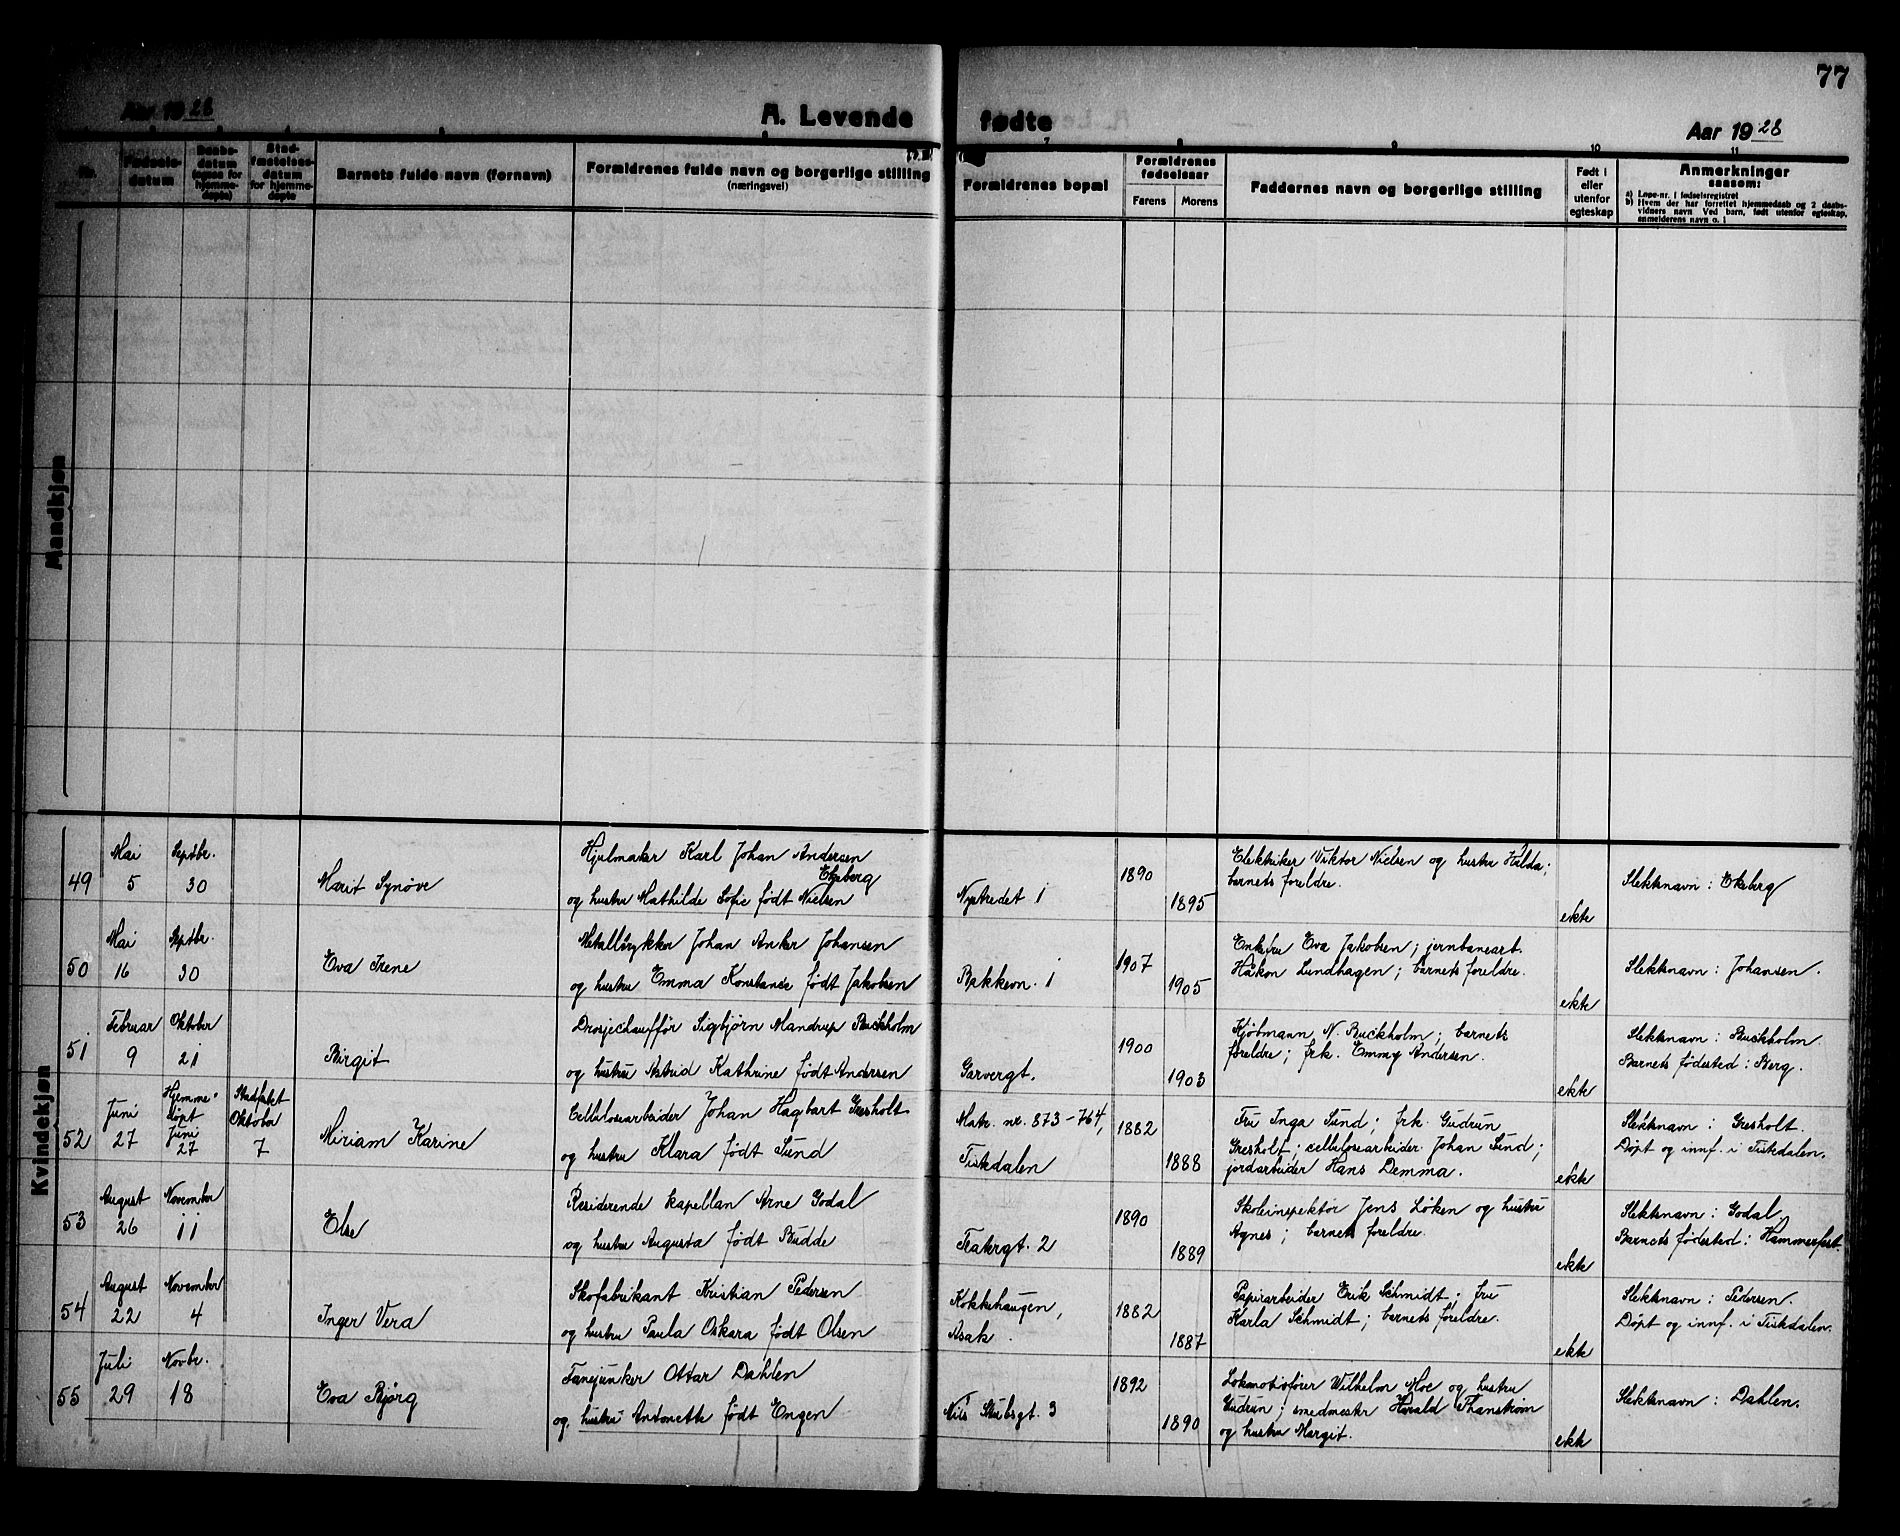 77
Aar 1928
A. Levende fødte
Aar 1928
Nr.
Fødsels-datum
Daabs-datum (ogsaa for hjemme-døpte)
Stad-fæstelses-datum for hjemme-døpte
Barnets fulde navn (fornavn)
Forældrenes fulde navn og borgerlige stilling
(næringsvei)
7
8
9
10
11
Forældrenes bopæl
Forældrenes fødselsaar
Farens
Morens
Faddernes navn og borgerlige stilling
Født i eller utenfor egteskap
Anmerkninger
saasom:
a) Løpe-nr. i fødselsregistret
b) Hvem der har forrettet hjemmedaab og 2 daabs-
vidners navn Ved barn, født utenfor egteskap,
anmelderens navn o. l
Mandkjøn
Kvindekjøn
49
Mai
5
Septbr.
30
Marit Synøve
Hjulmaker Karl Johan Andersen
Ekeberg
og hustru Mathilde Sofie født Nielsen
Nystredet 1
1890
1895
Elektriker Viktor Nielsen og hustru Hilda;
barnets foreldre.
ekte
Slektsnavn: Ekeberg
50
Mai
16
Septbr.
30
Eva Irene
Metalltrykker Johan Anker Johansen
og hustru Emma Konstanse født Jakobsen
Bakkevn. 1
1907
1905
Enkefru Eva Jakobsen; jernbanearb.
Håkon Lundhagen; barnets foreldre.
ekte
Slektsnavn: Johansen.
51
Februar
9
Oktober
21
Birgit
Drosjechauffør Sigbjørn Mandrup Buckholm
og hustru Astrid Kathrine født Andersen
Garvergt.
1900
1903
Kjøbmann N. Buckholm; barnets
foreldre; frk. Emmy Andersen.
ekte
Slektsnavn: Buckholm
Barnets fødested: Berg.
52
Juni
27
Hjemme-
døpt
Juni
27
Stadfekt
Oktober
7
Miriam Karine
Cellulosearbeider Johan Hagbart Gresholt
og hustru Klara født Sund
Matr. nr. 873-764,
Tistedalen
1882
1888
Fru Inga Sund; frk. Gudrun
Gresholt; cellulosearbeider Johan Sund;
jordarbeider Hans Demma.
ekte
Slektsnavn: Gresholt.
Døpt og innf. i Tistedalen.
53
August
26
November
11
Else
Residerende kapellan Arne Godal
og hustru Augusta født Budde
Teatergt. 2
1890
1889
Skoleinspektør Jens Løken og hustru
Agnes; barnets foreldre.
ekte
Slektsnavn: Godal
Barnets fødested: Hammerfest.
54
August
22
November
4
Inger Vera
Skofabrikant Kristian Pedersen
og hustru Paula Oskara født Olsen
Kokkehaugen,
Asak.
1882
1887
Papirarbeider Erik Schmidt; fru
Karla Schmidt; barnets foreldre.
ekte
Slektsnavn: Pedersen.
Døpt og innf. i Tistedalen.
55
Juli
29
Novbr.
18
Eva Bjørg
Fanejunker Ottar Dahlen
og hustru Antonette født Engen
Nils Stubsgt. 3
1892
1890
Lokomotivfører Wilhelm Moe og hustru
Gudrun; smedmester Harald Thanstrøm
og hustru Margit.
ekte
Slektsnavn: Dahlen.